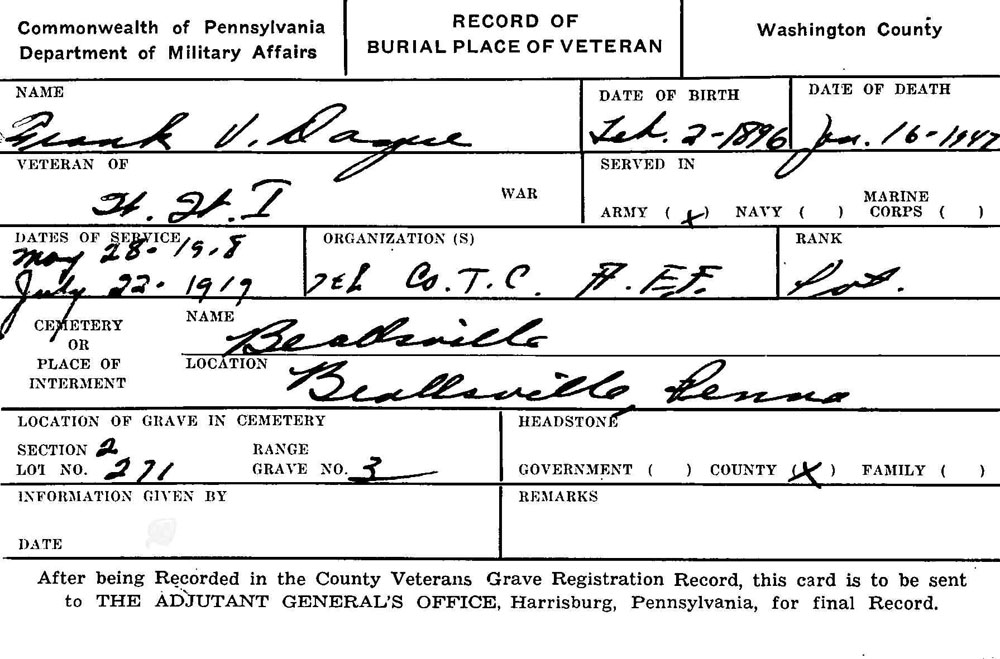 Commonwealth of Pennsylvania
Department of Military Affairs
RECORD OF
BURIAL PLACE OF VETERAN
Washington County
NAME
Frank V. Dague
DATE OF BIRTH
Feb. 2-1896
DATE OF DEATH
Jan. 16-1947
VETERAN OF
W. W. I
WAR
SERVED IN
ARMY (x) NAVY ( ) MARINE CORPS ( )
DATES OF SERVICE
May 28-1918
July 22-1919
ORGANIZATION (S)
Co. T. C. A. E. F.
RANK
Pvt.
CEMETERY
OR
PLACE OF
INTERMENT
NAME
Beallsville
LOCATION
Beallsville, Penna
LOCATION OF GRAVE IN CEMETERY
SECTION 2
RANGE
LOT NO. 271
GRAVE NO. 3
HEADSTONE
GOVERNMENT ( ) COUNTY (X) FAMILY ( )
INFORMATION GIVEN BY
DATE
REMARKS
After being Recorded in the County Veterans Grave Registration Record, this card is to be sent
to THE ADJUTANT GENERAL'S OFFICE, Harrisburg, Pennsylvania, for final Record.